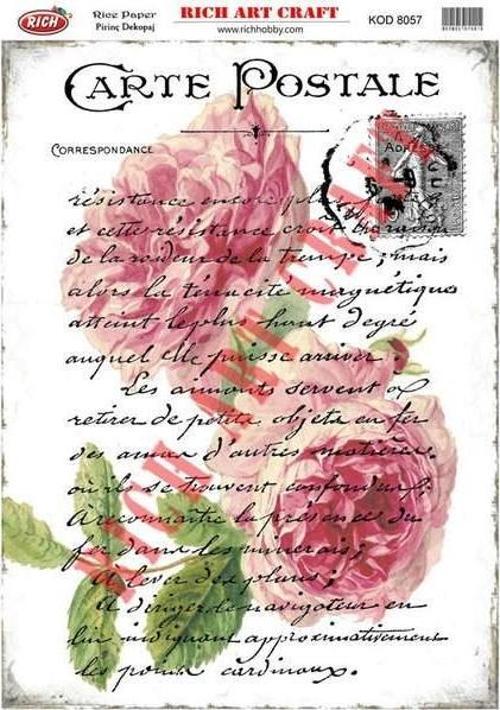 RICH
Rice Paper
Pirinç Dekopaj
RICH ART CRAFT
www.richhobby.com
KOD 8057
CARTE POSTALE
CORRESPONDANCE
A
Adresse
RICH ART CRAFT
résistance encore plus
et cette résistance croît
de la roideur de la trempe ; mais
alors la ténacité magnétique
atteint le plus haut degré
auquel elle puisse arriver.
Les aimants servent à
retirer de petits objets en fer
des amas d'autres matières
où ils se trouvent confondus ;
À reconnaître la présence du
fer dans les minerais ;
À lever des plans ;
À diriger le navigateur en
lui indiquant approximativement
les points cardinaux.